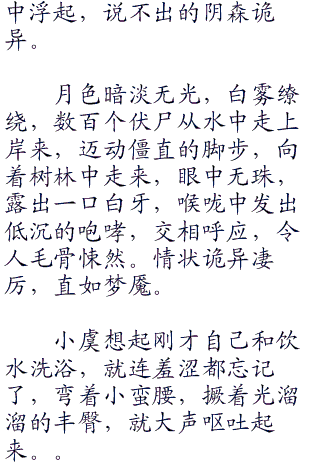 中浮起，说不出的阴森诡
异。
月色暗淡无光，白雾缭
绕，数百个伏尸从水中走上
岸来，迈动僵直的脚步，向
着树林中走来，眼中无珠，
露出一口白牙，喉咙中发出
低沉的咆哮，交相呼应，令
人毛骨悚然。情状诡异凄
厉，直如梦魇。
小虞想起刚才自己和饮
水洗浴，就连羞涩都忘记
了，弯着小蛮腰，撅着光溜
溜的丰臀，就大声呕吐起
来。。